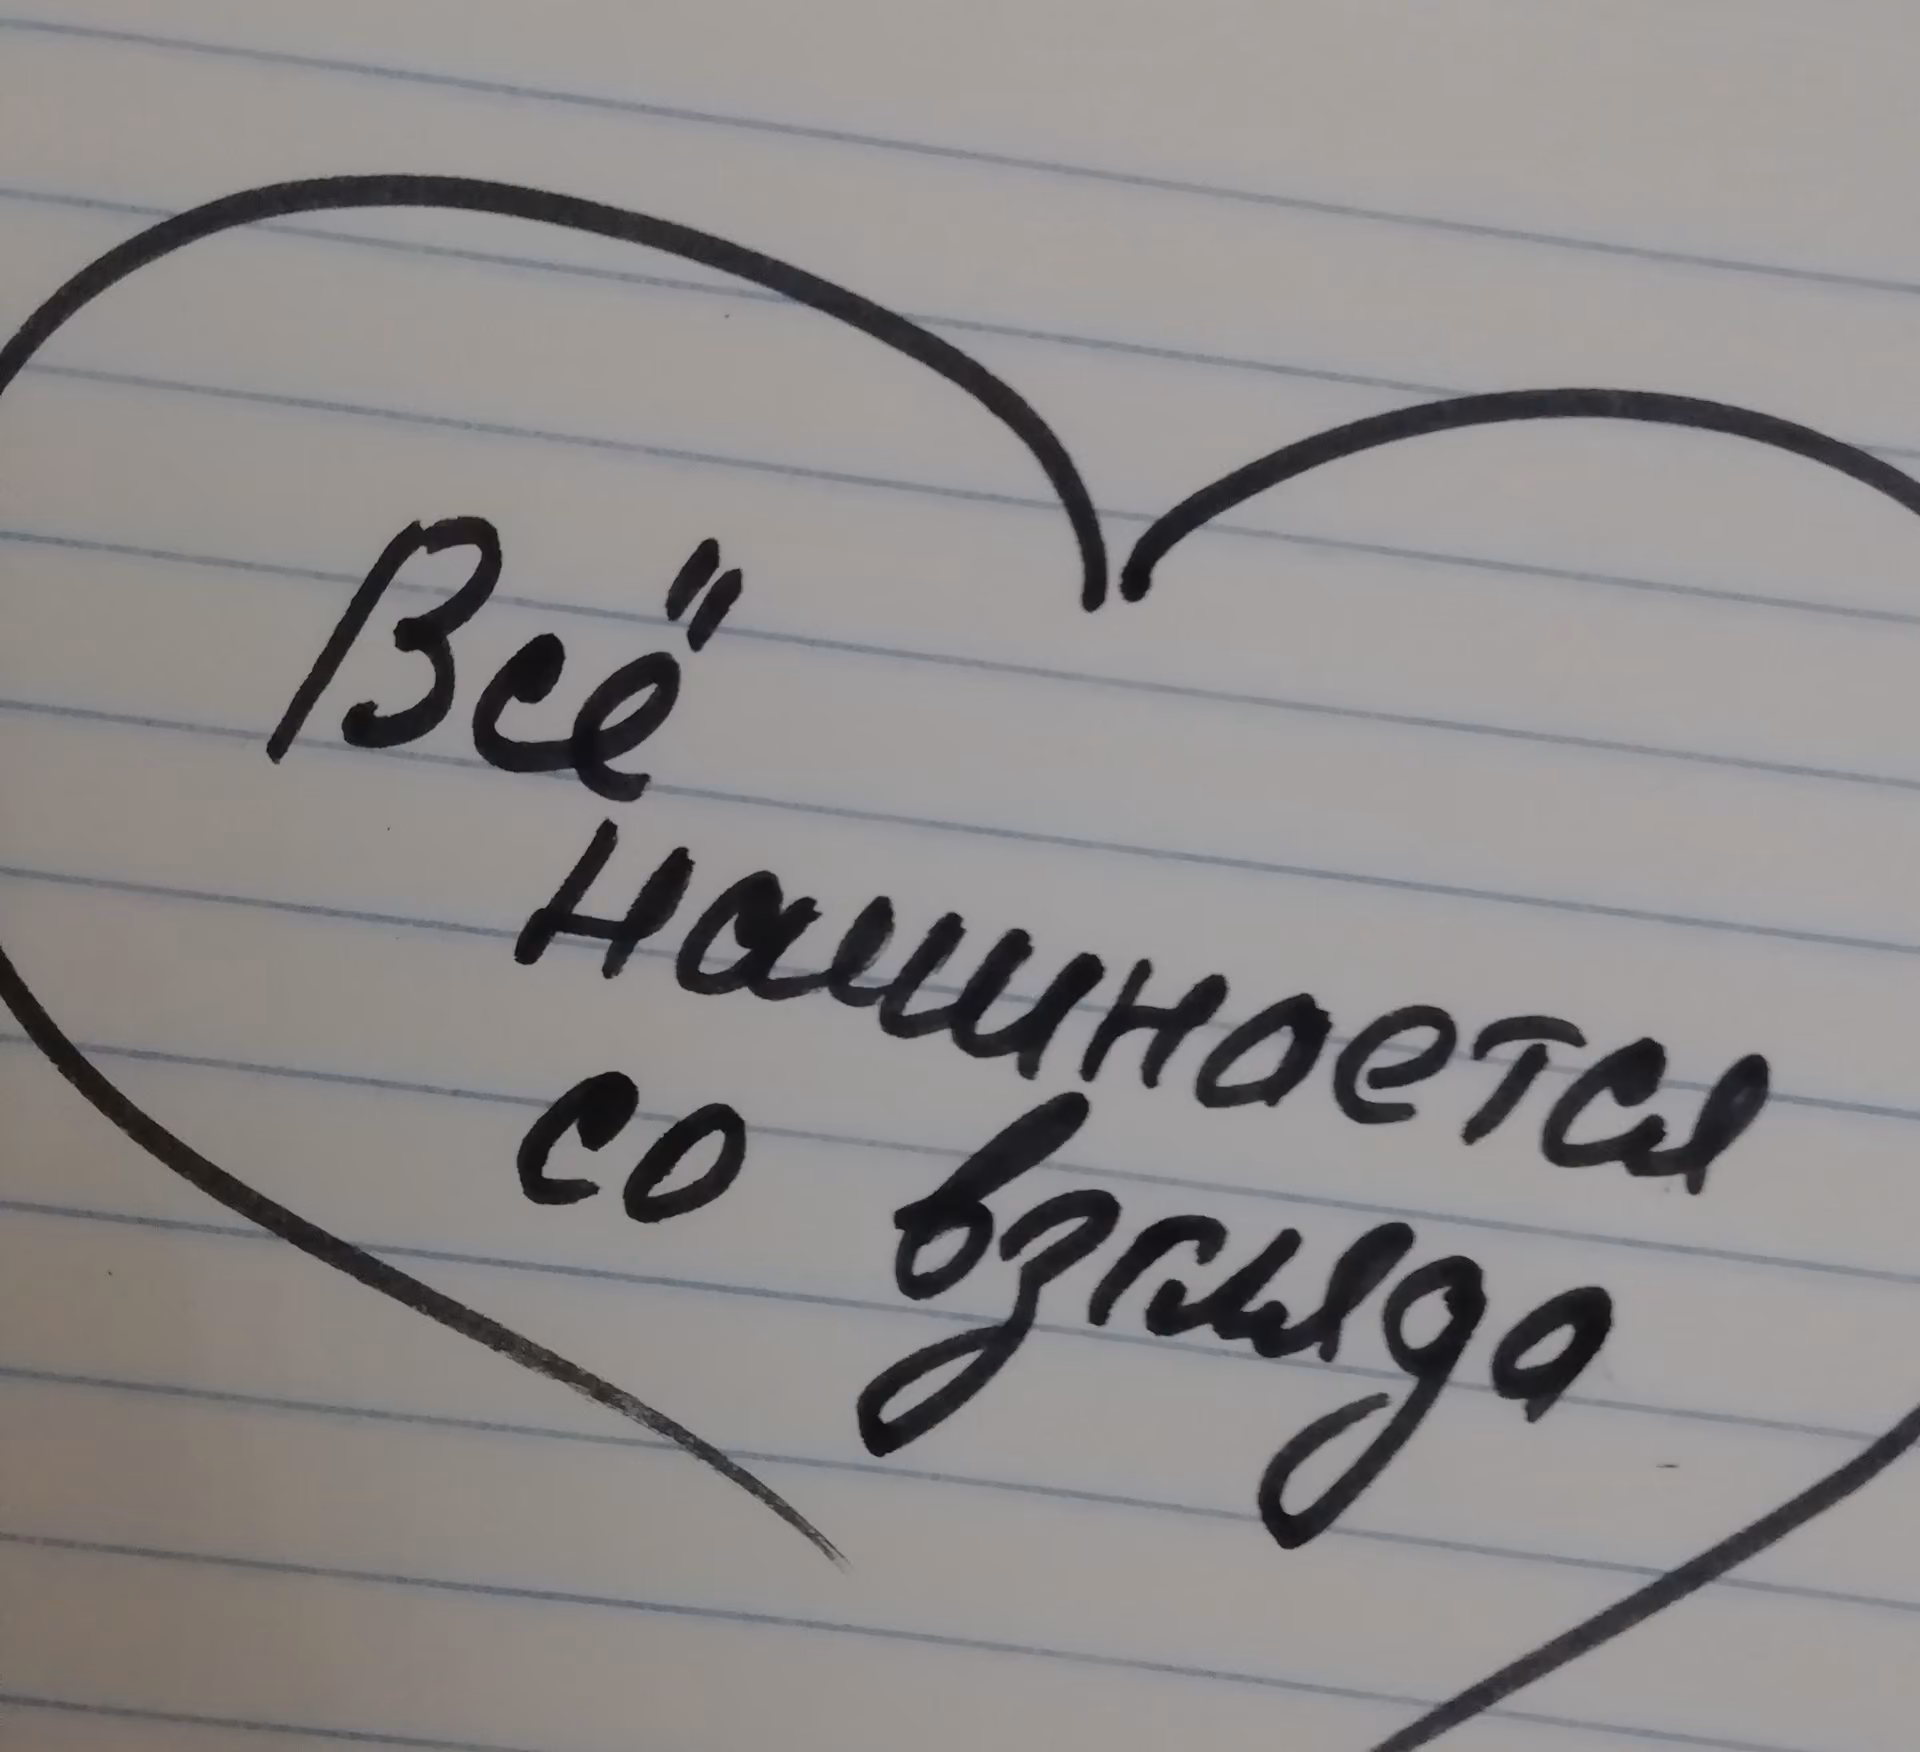 Всё
начинается
со взгляда